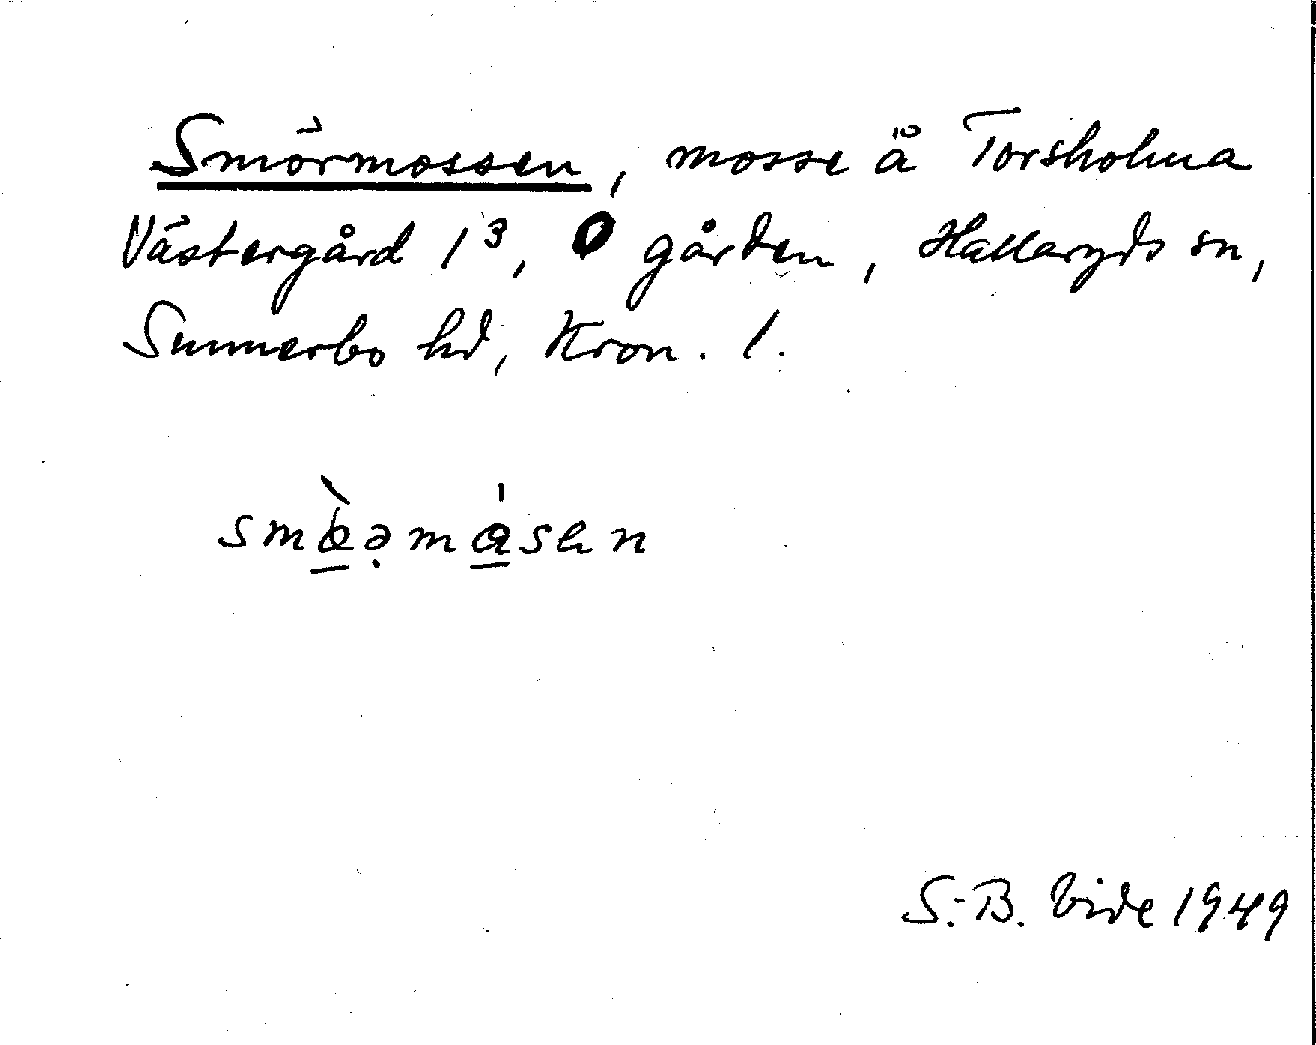 Smörmossen, mosse å Torsholma
Västergård 1³, O gården, Hallaryds sn,
Sunnerbo hd, Kron. l.
S.-B. Vide 1949